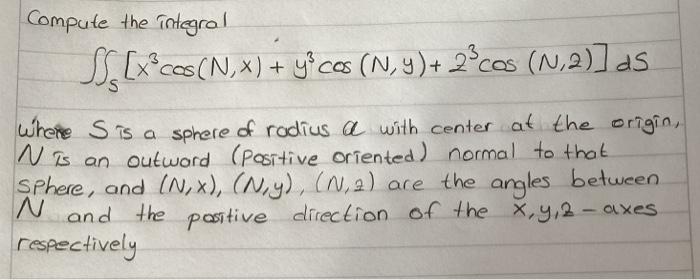 Compute the integral
∬_S [x³cos(N,x) + y³cos (N,y) + 2³cos (N,2)] ds
where S is a sphere of radius a with center at the origin,
N is an outword (positive oriented) normal to that
sphere, and (N,x), (N,y), (N,2) are the angles between
N and the positive direction of the x,y,2-axes
respectively